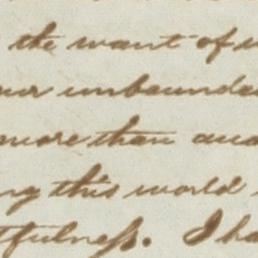 the want of
unbounded
more than
this world
tfulness. I ha